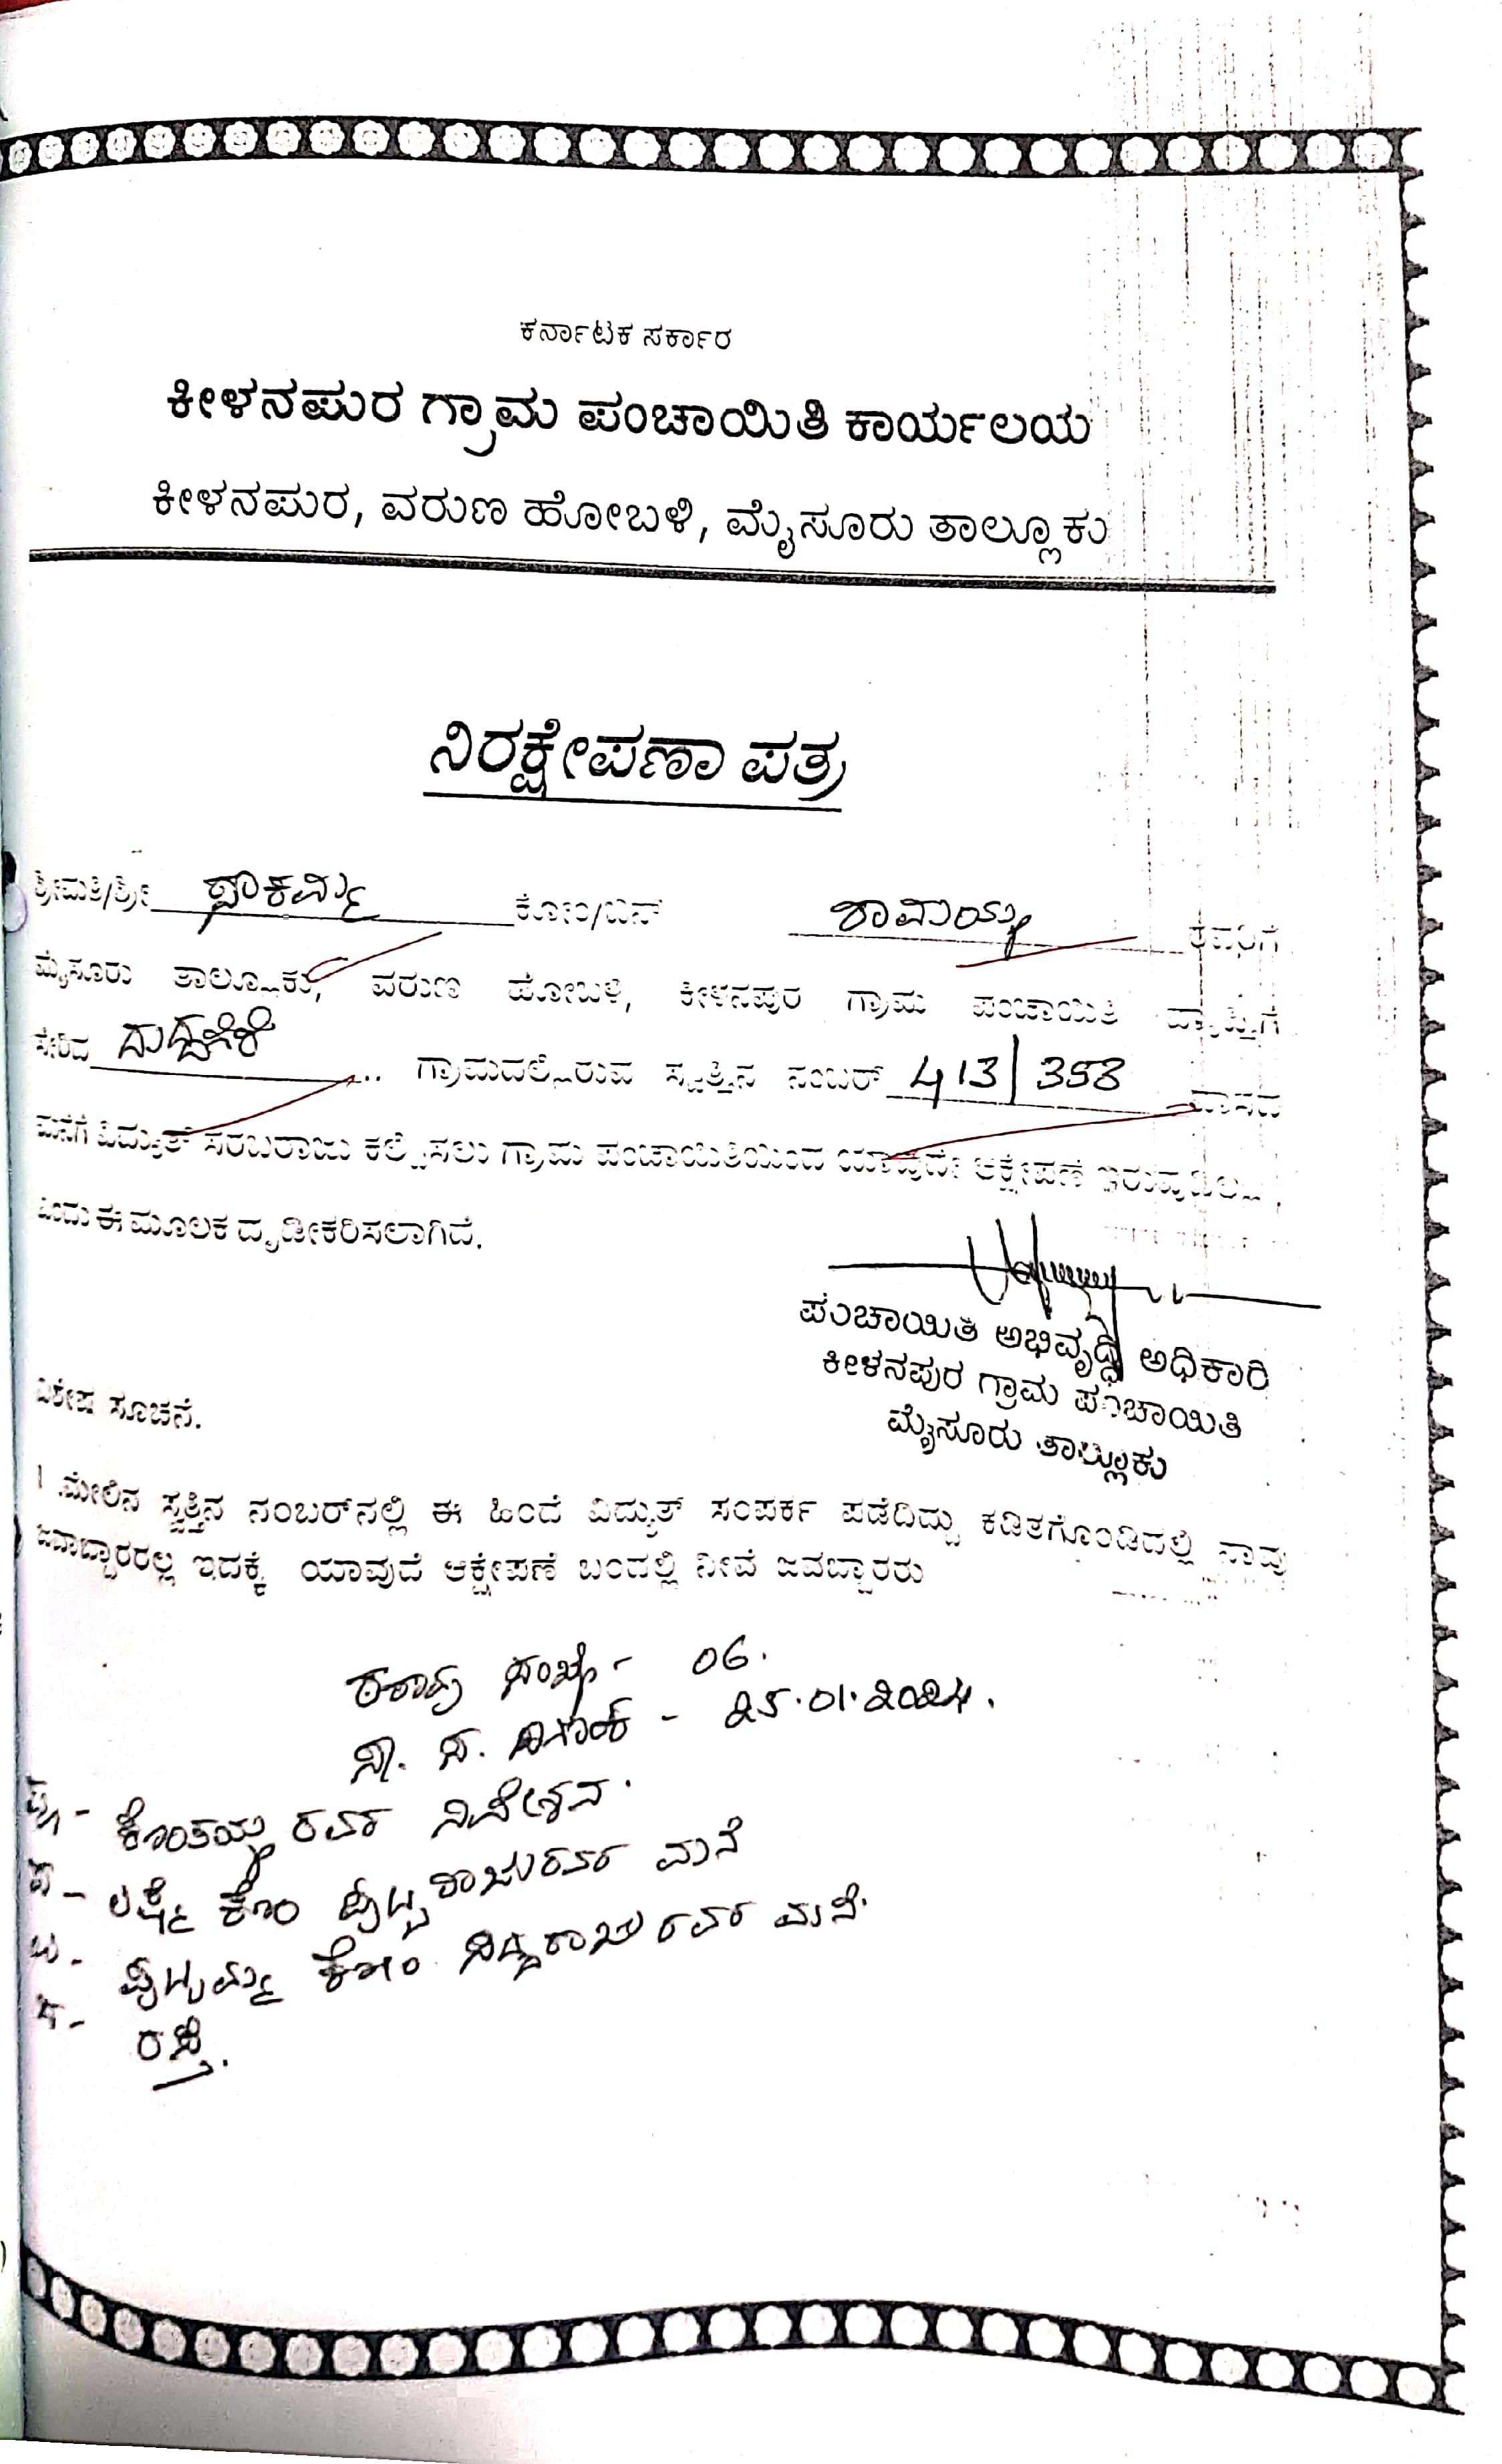 ಕರ್ನಾಟಕ ಸರ್ಕಾರ
ಕೀಳನಪುರ ಗ್ರಾಮ ಪಂಚಾಯಿತಿ ಕಾರ್ಯಲಯ
ಕೀಳನಪುರ, ವರುಣ ಹೋಬಳಿ, ಮೈಸೂರು ತಾಲ್ಲೂಕು
ನಿರಕ್ಷೇಪಣಾ ಪತ್ರ
ಶ್ರೀಮತಿ/ಶ್ರೀ ಕೋಂ/ಬಿನ್ ರಾಮಯ್ಯ ರವರಿಗೆ
ಮೈಸೂರು ತಾಲ್ಲೂಕು, ವರುಣ ಹೋಬಳಿ, ಕೀಳನಪುರ ಗ್ರಾಮ ಪಂಚಾಯಿತಿ ವ್ಯಾಪ್ತಿಗೆ
ಸೇರಿದ .. ಗ್ರಾಮದಲ್ಲಿರುವ ಸ್ವತ್ತಿನ ನಂಬರ್ 413/358 ವಾಸದ
ಮನೆಗೆ ವಿದ್ಯುತ್ ಸರಬರಾಜು ಕಲ್ಪಿಸಲು ಗ್ರಾಮ ಪಂಚಾಯಿತಿಯಿಂದ ಯಾವುದೇ ಆಕ್ಷೇಪಣೆ ಇರುವುದಿಲ್ಲ,
ಎಂದು ಈ ಮೂಲಕ ದೃಡೀಕರಿಸಲಾಗಿದೆ.
ಪಂಚಾಯಿತಿ ಅಭಿವೃದ್ಧಿ ಅಧಿಕಾರಿ
ಕೀಳನಪುರ ಗ್ರಾಮ ಪಂಚಾಯಿತಿ
ಮೈಸೂರು ತಾಲ್ಲೂಕು
ವಿಶೇಷ ಸೂಚನೆ.
1 .ಮೇಲಿನ ಸ್ವತ್ತಿನ ನಂಬರ್‌ನಲ್ಲಿ ಈ ಹಿಂದೆ ವಿದ್ಯುತ್ ಸಂಪರ್ಕ ಪಡೆದಿದ್ದು ಕಡಿತಗೊಂಡಿದಲ್ಲಿ ನಾವು
ಜವಾಬ್ದಾರರಲ್ಲ ಇದಕ್ಕೆ ಯಾವುದೆ ಆಕ್ಷೇಪಣೆ ಬಂದಲ್ಲಿ ನೀವೆ ಜವಬ್ದಾರರು
ಠರಾವು ಸಂಖ್ಯೆ - 06.
ಸಾ. ಸ. ದಿನಾಂಕ - 25.01.2024.
ಪೂ - ಕೆಂತಯ್ಯ ರವರ ನಿವೇಶನ.
ಪ - ಲಕ್ಷ್ಮಿ ಕೋಂ ಪುಟ್ಟರಾಜುರವರ ಮನೆ
ಉ - ಪುಟ್ಟಮ್ಮ ಕೋಂ ಸಿದ್ದರಾಜು ರವರ ಮನೆ.
ದ - ರಸ್ತೆ.